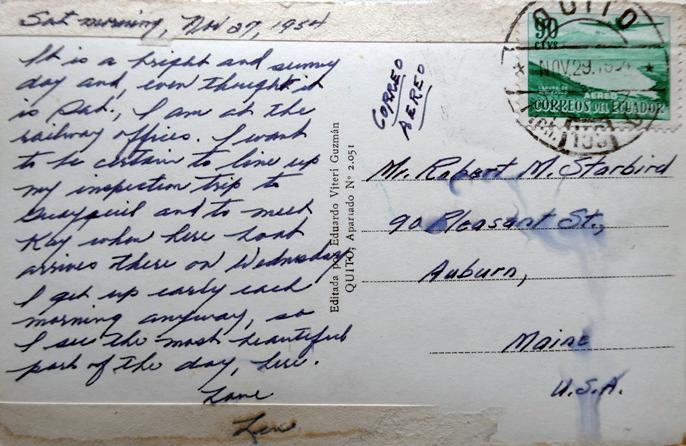 Sat morning, Nov 27, 1954
It is a bright and sunny
day and, even though it
is Sat., I am at the
railway offices. I want
to be certain to line up
my inspection trip to
Guayquil and to meet
Kay when here boat
arrives there on Wednesday.
I get up early each
morning anyway, so
I see the most beautiful
part of the day, here.
Love
Len
Editada por Eduardo Viteri Guzmán
QUITO, Apartado Nº 2.051
CORREO
AEREO
QUITO
NOV 29.1954
90
CTVS
AEREO
CORREOS DEL ECUADOR
Mr. Robert M. Starbird
90 Pleasant St.,
Auburn,
Maine
U.S.A.